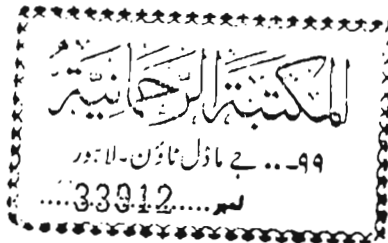 المكتبة الرحمانية
۹۹-.. جے ماڈل ٹاؤن ۔ لاہور
نمبر ....33912....